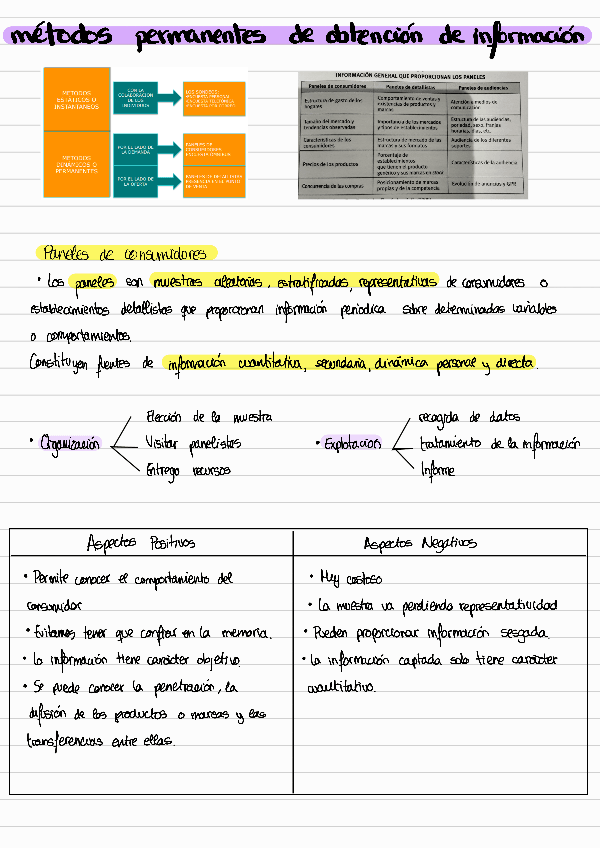 métodos permanentes de obtención de información
MÉTODOS
ESTÁTICOS O
INSTANTÁNEOS
CON LA
COLABORACIÓN
DE LOS
INDIVIDUOS
LOS SONDEOS:
ENCUESTA PERSONAL
ENCUESTA TELEFÓNICA
MÉTODOS
DINÁMICOS O
PERMANENTES
POR EL LADO DE
LA DEMANDA
PANELES DE
CONSUMIDORES
POR EL LADO DE
LA OFERTA
PANELES DE DETALLISTAS
DE VENTA
INFORMACIÓN GENERAL QUE PROPORCIONAN LOS PANELES
Paneles de consumidores Paneles de detallistas Paneles de audiencias
Estructura de gasto de los
hogares
Comportamiento de ventas y
existencias de productos y
marcas
Atención a medios de
comunicación
Tamaño del mercado y
tendencias observadas
Importancia de los mercados
y tipos de establecimientos
Estructura de las audiencias,
por edad, sexo, franjas
horarias, días, etc.
Características de los
consumidores
Estructura de mercado de las
marcas y sus formatos
Audiencia de los diferentes
soportes
Precios de los productos
Porcentaje de
establecimientos
que tienen el producto
genérico y sus marcas en stock
Características de la audiencia
Concurrencia de las compras
Posicionamiento de marcas
propias y de la competencia
Evolución de anuncios y GPR
Paneles de consumidores
• Los paneles son muestras aleatorias, estratificadas, representativas de consumidores o
establecimientos detallistas que proporcionan información periodica sobre determinadas variables
o comportamientos.
Constituyen fuentes de información cuantitativa, secundaria, dinámica personal y directa.
• Organización
Elección de la muestra
Visitar panelistas
Entrega recursos
• Explotación
recogida de datos
tratamiento de la información
Informe
Aspectos Positivos
• Permite conocer el comportamiento del
consumidor
• Evitamos tener que confiar en la memoria.
• La información tiene carácter objetivo.
• Se puede conocer la penetración, la
difusión de los productos o marcas y las
transferencias entre ellas.
Aspectos Negativos
• Muy costoso
• La muestra va perdiendo representatividad
• Pueden proporcionar información sesgada.
• La información captada solo tiene carácter
cuantitativo.